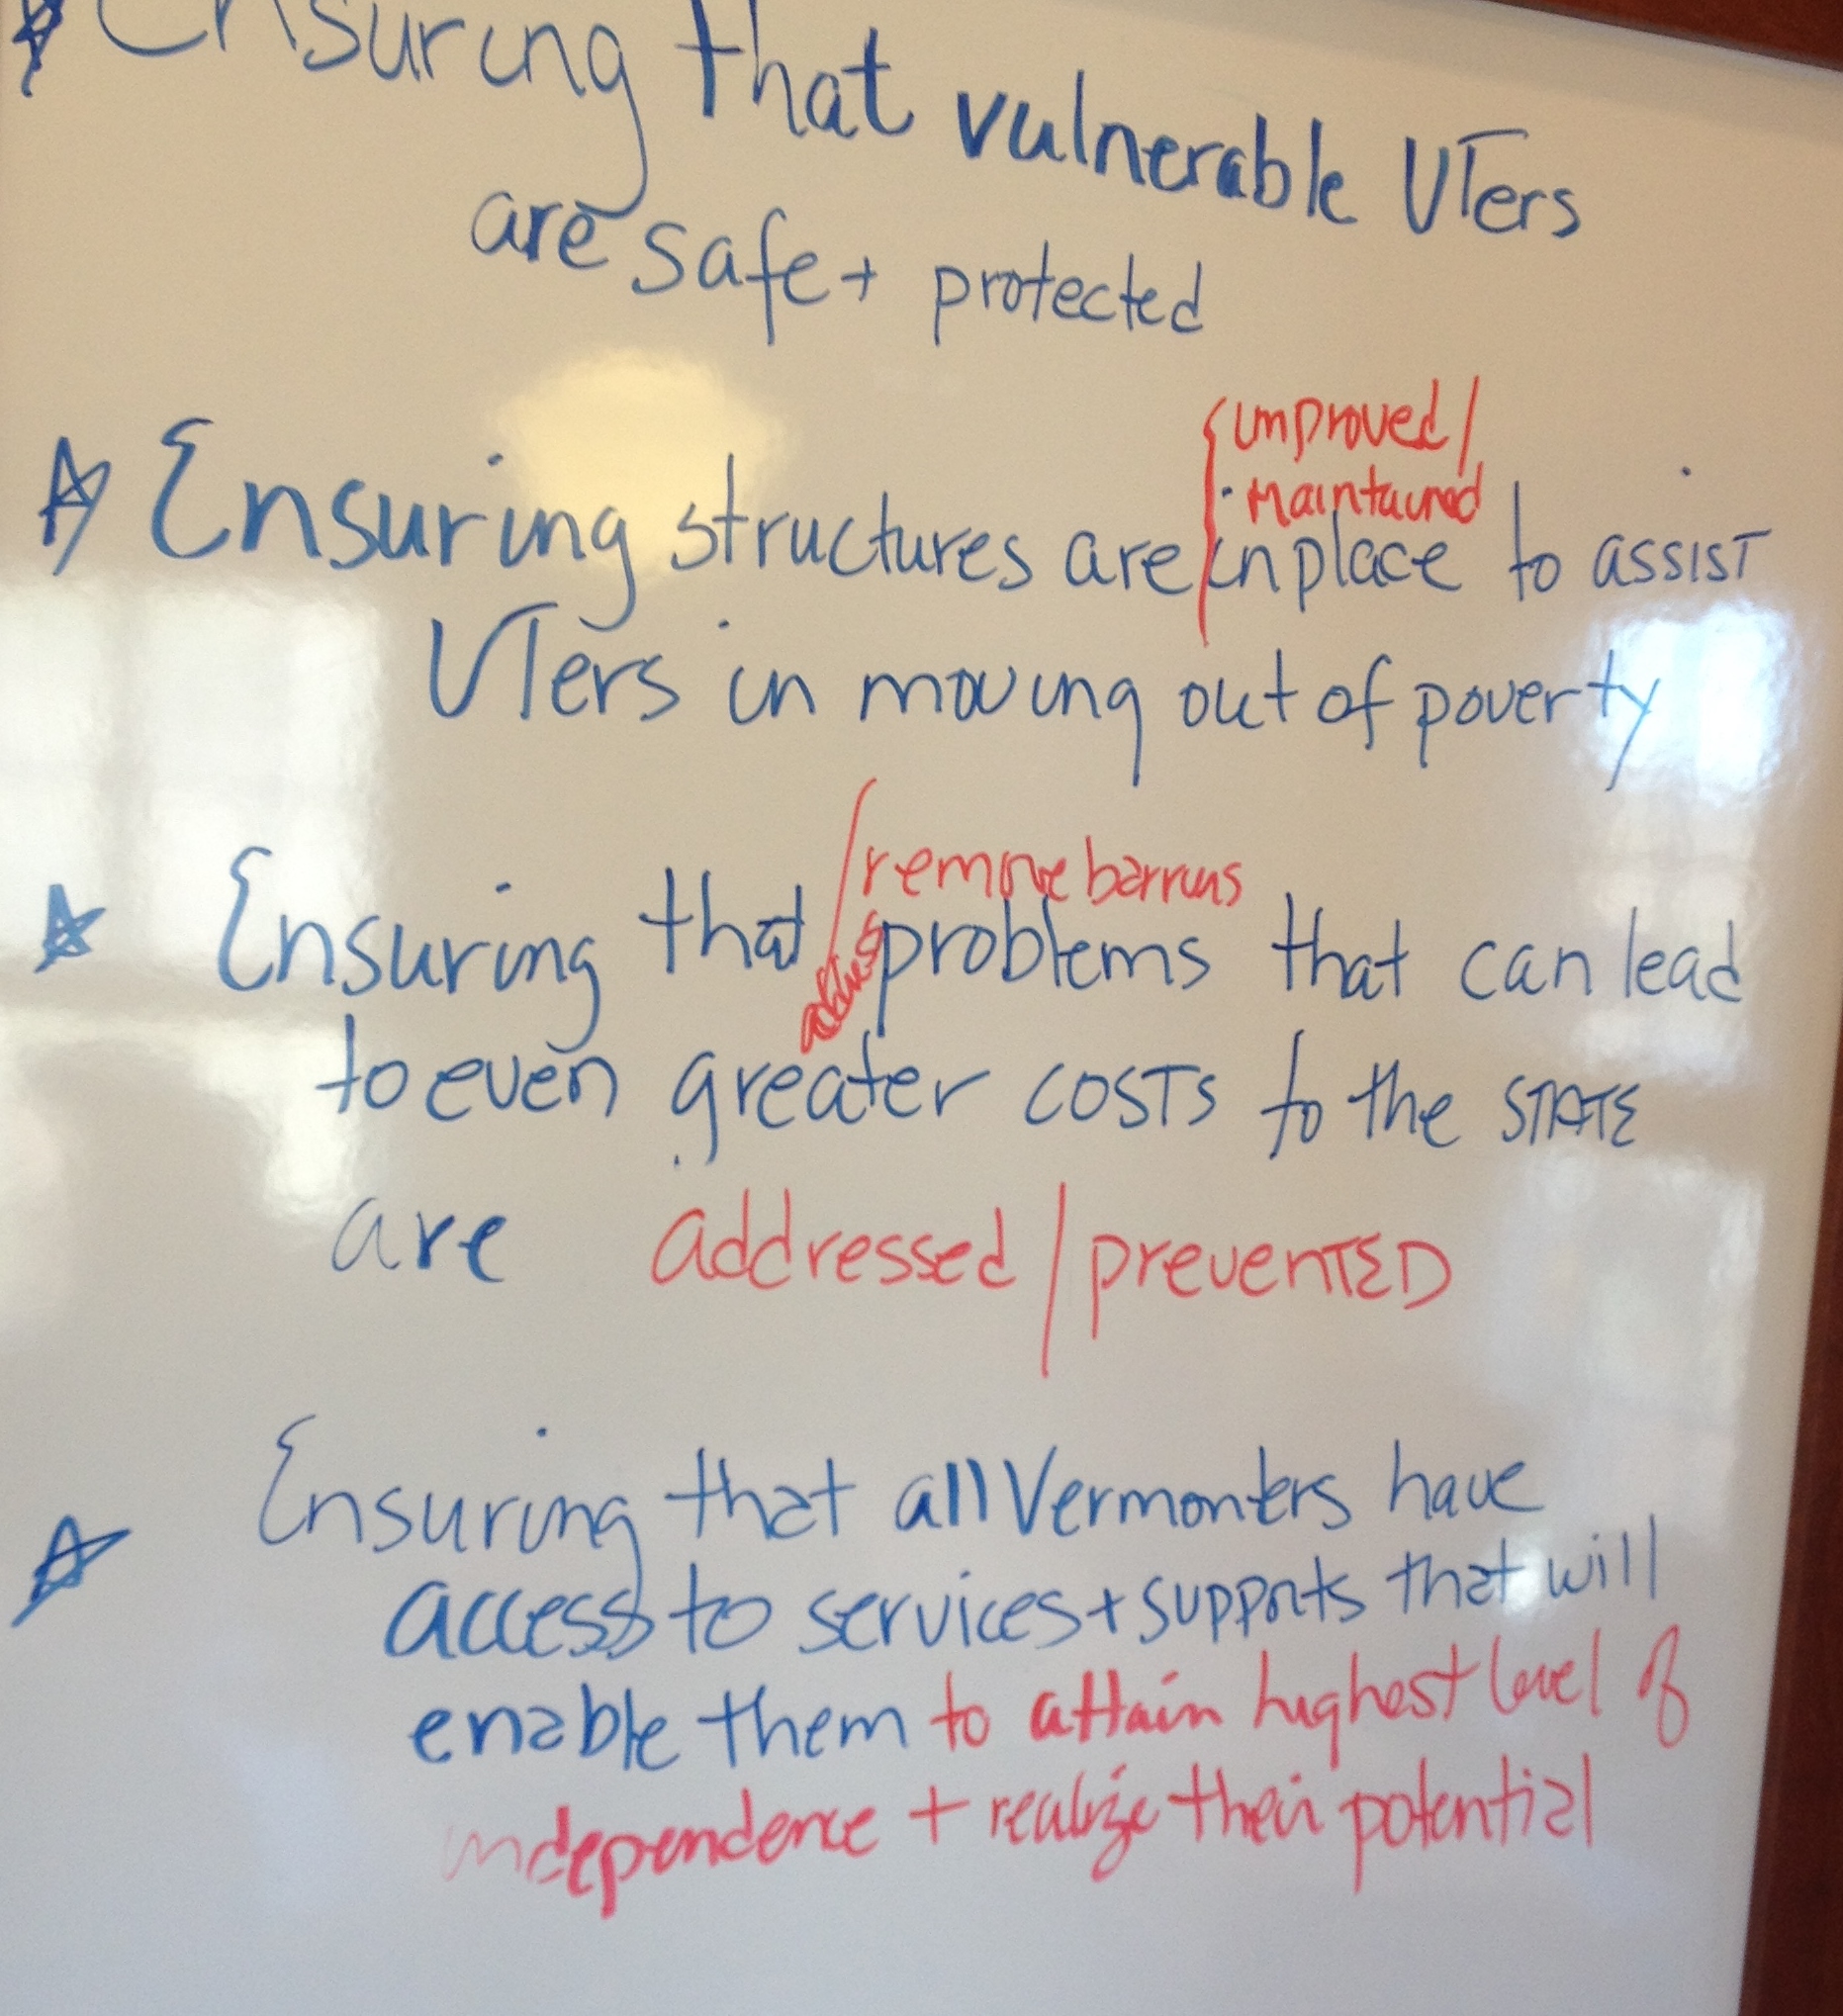 Ensuring that vulnerable VTers
are safe + protected
improved /
maintained
Ensuring structures are in place to assist
VTers in moving out of poverty
remove barriers
Ensuring that address problems that can lead
to even greater costs to the STATE
are addressed / prevented
Ensuring that all Vermonters have
access to services + supports that will
enable them to attain highest level of
independence + realize their potential